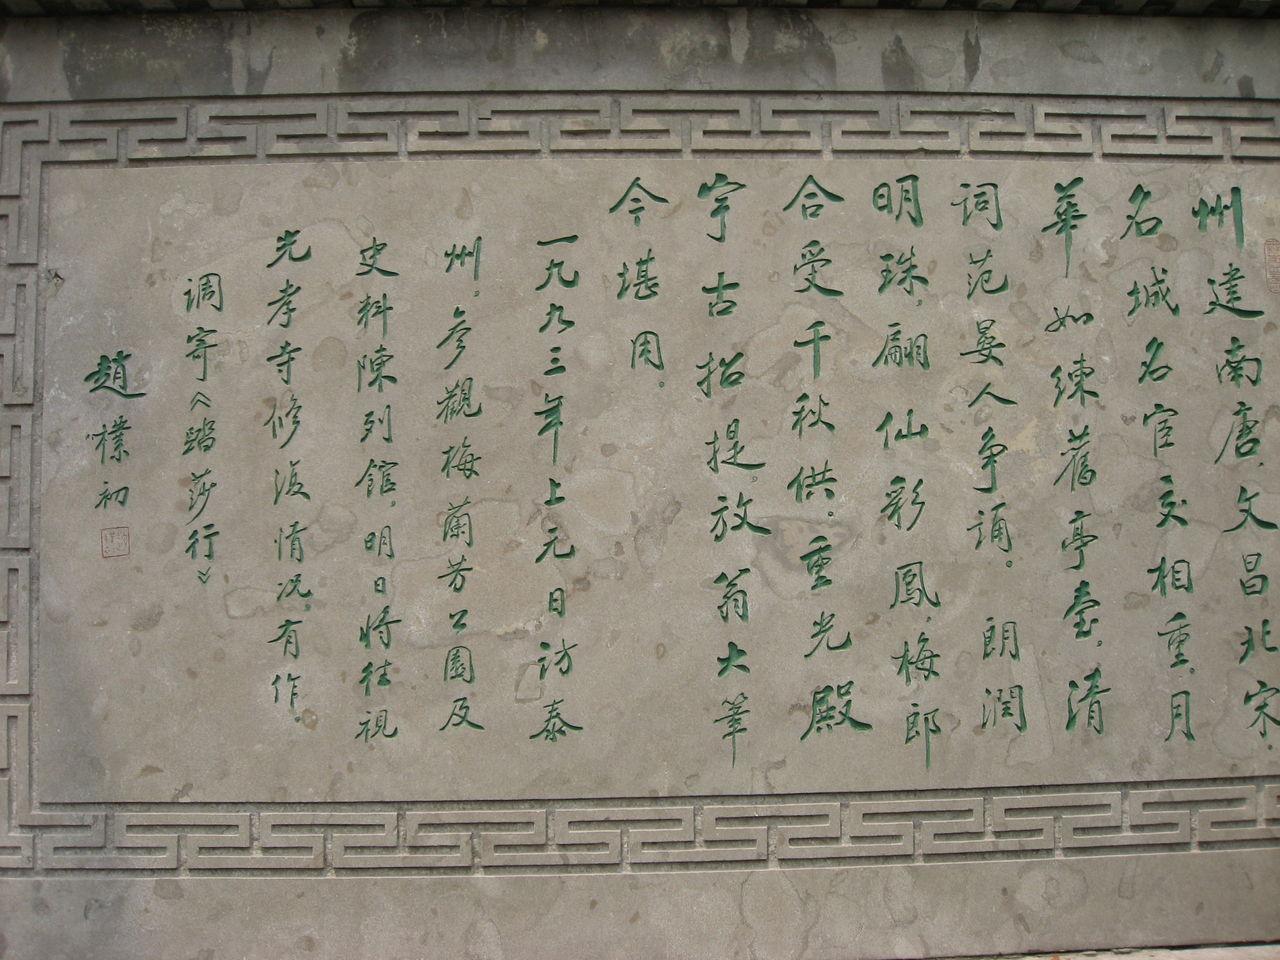 州建南唐，文昌北宋。
名城名宦交相重。月
華如練舊亭臺，清
词范晏人争诵。 朗潤
明珠，翩仙彩鳳，梅郎
合受千秋供。重光殿
宇古招提，放翁大筆
今堪用。
一九九三年上元日访泰
州，参觀梅蘭芳公園及
史料陳列館，明日将往視
光孝寺修復情况，有作。
调寄《踏莎行》
趙樸初